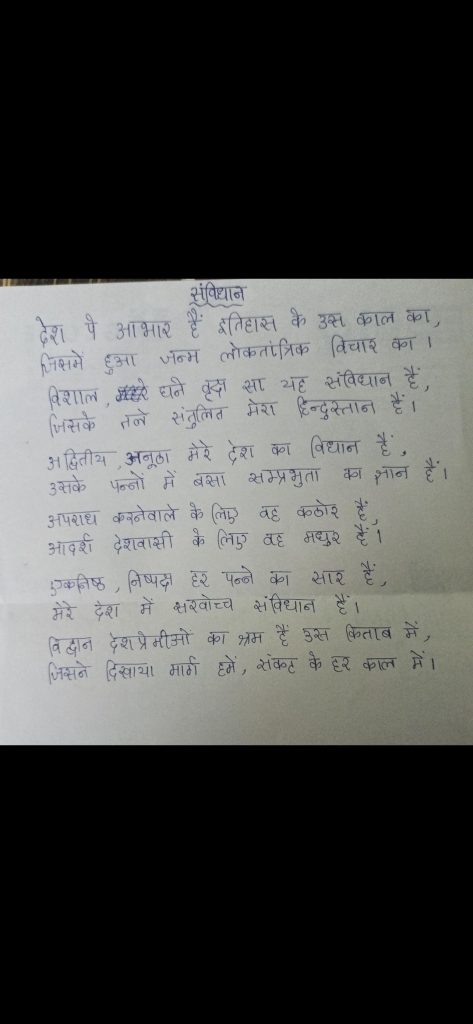 संविधान
देश पे आभार हैं इतिहास के उस काल का,
जिसमें हुआ जन्म लोकतांत्रिक विचार का।
विशाल, घने वृक्ष सा यह संविधान हैं,
जिसके तले संतुलित मेरा हिन्दुस्तान हैं।
अद्वितीय, अनूठा मेरे देश का विधान हैं,
उसके पन्नों में बसा सम्प्रभुता का ज्ञान हैं।
अपराध करनेवाले के लिए वह कठोर हैं,
आदर्श देशवासी के लिए वह मधुर हैं।
एकनिष्ठ, निष्पक्ष हर पन्ने का सार हैं,
मेरे देश में सरवोच्च संविधान हैं।
विद्वान देशप्रेमीओं का श्रम हैं उस किताब में,
जिसने दिखाया मार्ग हमें, संकट के हर काल में।